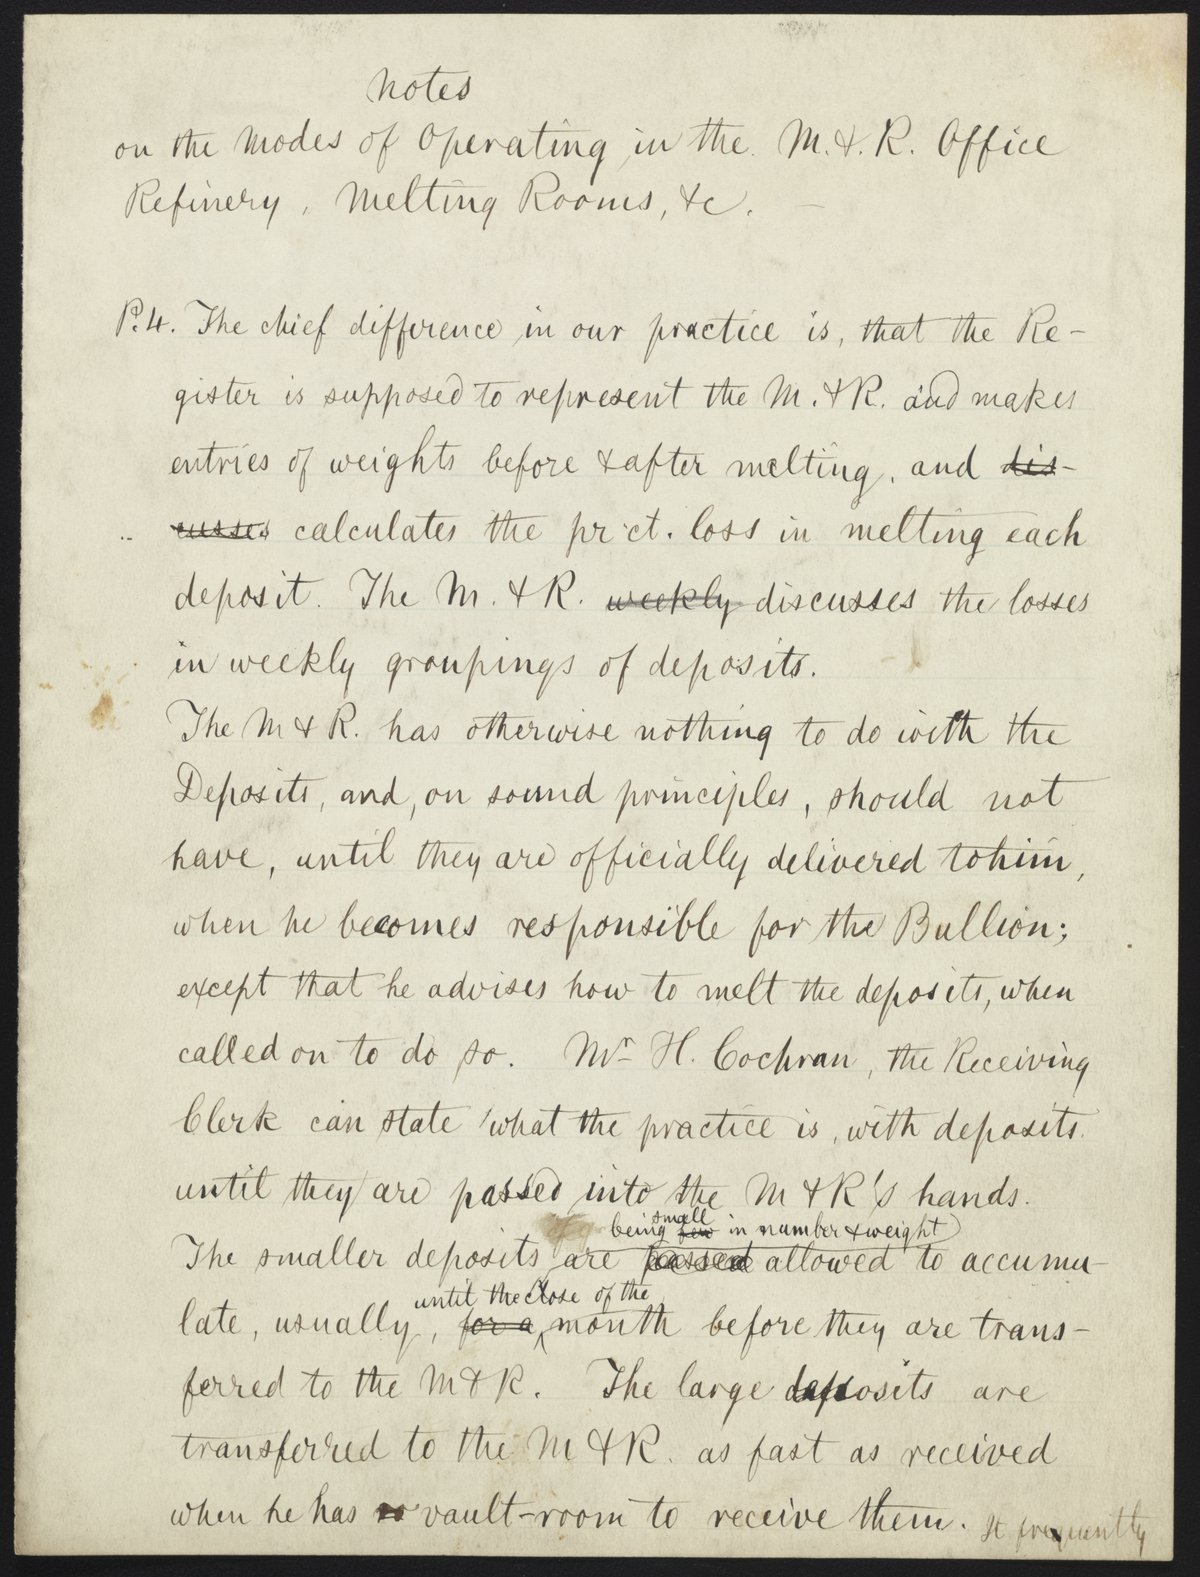 Notes
on the Modes of Operating in the M. & R. Office
Refinery, Melting Rooms, &c. —
P. 4. The chief difference in our practice is, that the Re-
gister is supposed to represent the M. & R. and makes
entries of weights before & after melting, and dis-
cusses calculates the pr ct. loss in melting each
deposit. The M. & R. weekly discusses the losses
in weekly groupings of deposits.
The M & R. has otherwise nothing to do with the
Deposits, and, on sound principles, should not
have, until they are officially delivered to him,
when he becomes responsible for the Bullion;
except that he advises how to melt the deposits, when
called on to do so. Mr H. Cochran, the Receiving
Clerk can state what the practice is, with deposits
until they are passed into the M & R's hands.
small
being few in number & weight)
The smaller deposits are passed allowed to accumu-
until the close of the
late, usually, for a month before they are trans-
ferred to the M & R. The large deposits are
transferred to the M & R. as fast as received
when he has vault-room to receive them. It frequently